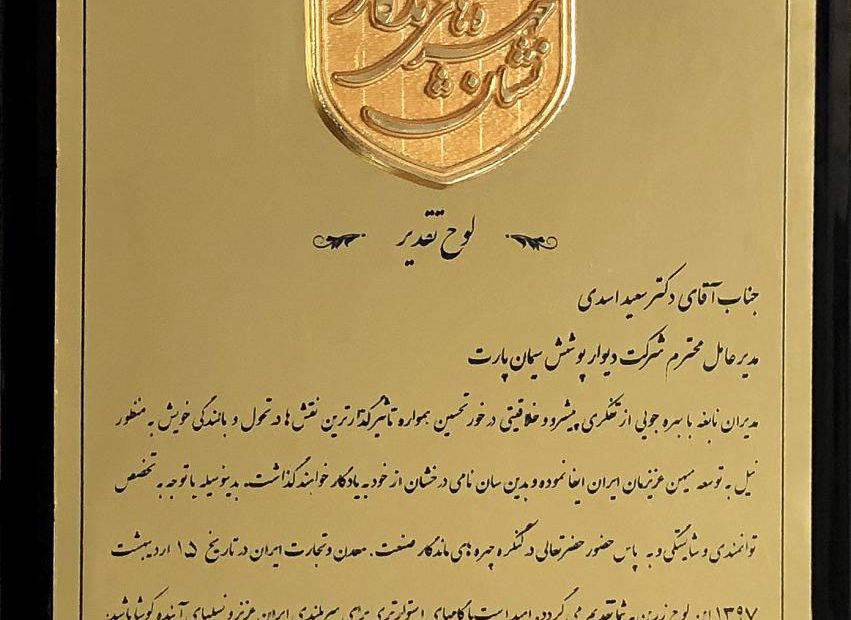 ماندگار
چهره های
نشان
لوح تقدیر
جناب آقای دکتر سعید اسدی
مدیر عامل محترم شرکت دیوار پوشش سیمان پارت
مدیران نابغه با بهره جویی از تفکری پیشرو و خلاقیتی در خور تحسین همواره تاثیرگذارترین نقش ها در تحول و بالندگی خویش به منظور
نیل به توسعه میهن عزیزمان ایران ایفا نموده و بدین سان نامی درخشان از خود به یادگار خواهند گذاشت. بدینوسیله با توجه به تخصص
توانمندی و شایستگی و به پاس حضور حضرتعالی در کنگره چهره های ماندگار صنعت، معدن و تجارت ایران در تاریخ ۱۵ اردیبهشت
۱۳۹۷ این لوح زرین به شما تقدیم می گردد. امید است با گامهای استوارتری برای سربلندی ایران عزیز و نسلهای آینده کوشا باشید.